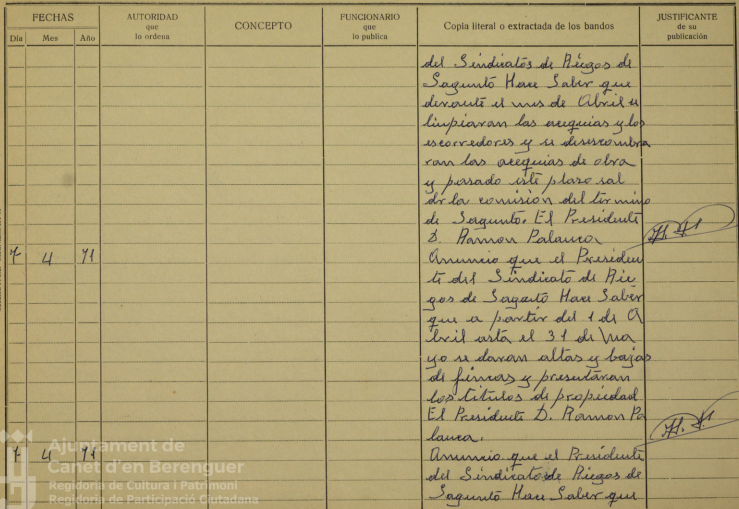 FECHAS
Día Mes Año
AUTORIDAD
que
lo ordena
CONCEPTO
FUNCIONARIO
que
lo publica
Copia literal o extractada de los bandos
JUSTIFICANTE
de su
publicación
del Sindicatos de Riegos de
Sagunto Hace Saber que
derante el mes de Abril se
linpiaran las acequias y los
escorredores y se desescombra
ran las acequias de obra
y pasado este plazo sal
dr la comision del termino
de Sagunto. El Presidente
D. Ramon Palanca
7 4 71 Anuncio que el Presiden
te del Sindicato de Rie
gos de Sagunto Hace Saber
que a partir del 1 de A
bril asta el 31 de Ma
yo se daran altas y bajas
de fincas y presentaran
los titulos de propiedad
El Presidente D. Ramon Pa
lanca.
7 4 71 Anuncio que el Presidente
del Sindicatode Riegos de
Sagunto Hace Saber que
Ajuntament de
Canet d'en Berenguer
Regidoria de Cultura i Patrimoni
Regidoria de Participació Ciutadana